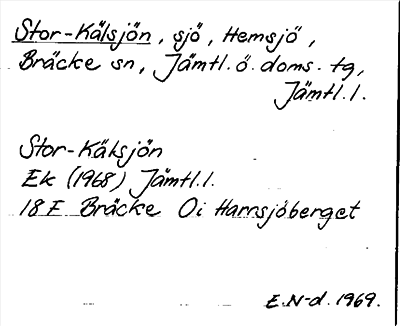 Stor-Kälsjön, sjö, Hemsjö,
Bräcke sn, Jämtl. ö. doms. tg,
Jämtl. l.
Stor-Kälsjön
Ek (1968) Jämtl. l.
18 F Bräcke Oi Harrsjöberget
E.N-d. 1969.